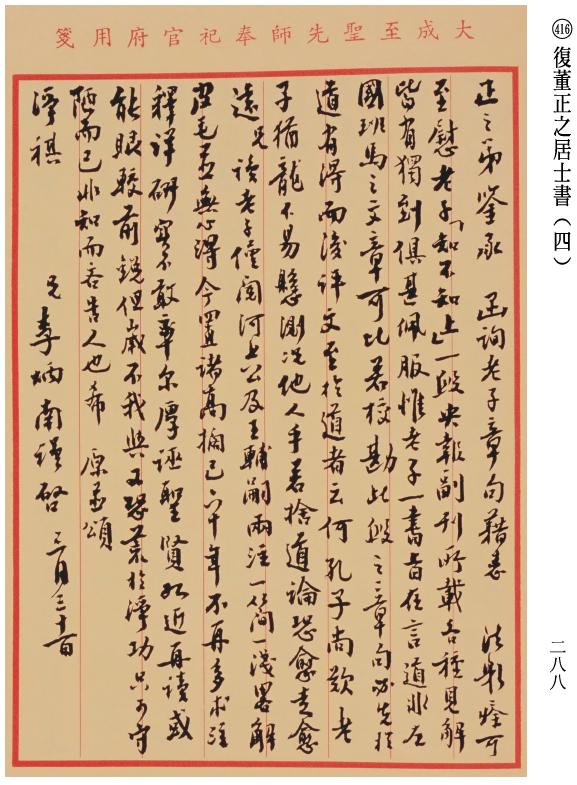 416 復董正之居士書（四）
二八八
大成至聖先師奉祀官府用箋
正之弟鑒承　函詢老子章句藉悉　法躬痊可
至慰老子「知不知上」一段央報副刊所載各種見解
皆有獨到俱甚佩服惟老子一書旨在言道非左
國班馬之文章可比若校勘此段之章句必先於
道有得而後評文至於道者云何孔子尚歎老
子猶龍不易懸測况他人乎若捨道論恐愈走愈
遠兄讀老子僅閱河上公及王輔嗣兩注一簡一淺畧解
皮毛並無心得今置諸高擱已六十年不再多求注
釋詳研實不敢率尔厚誣聖賢如近再讀或
能眼較前銳但歲不我與又恐荒於淨功只可守
陋而已非知而吝告人也希　原並頌
淨祺
兄李炳南謹啓　三月三十一日